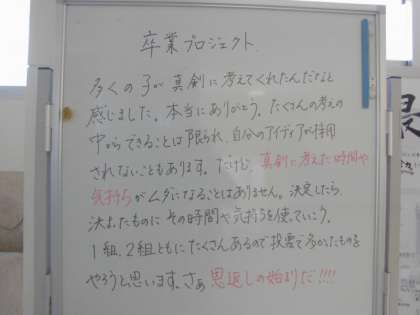 卒業プロジェクト.
多くの子が真剣に考えてくれたんだなと
感じました。本当にありがとう。たくさんの考えの
中からできることは限られ、自分のアイディアが採用
されないこともあります。だけど、真剣に考えた時間や
気持ちがムダになることはありません。決定したら、
決まったものにその時間や気持ちを使っていこう。
1組、2組ともにたくさんあるので投票で多かったものを
やろうと思います。さぁ恩返しの始まりだ!!!!